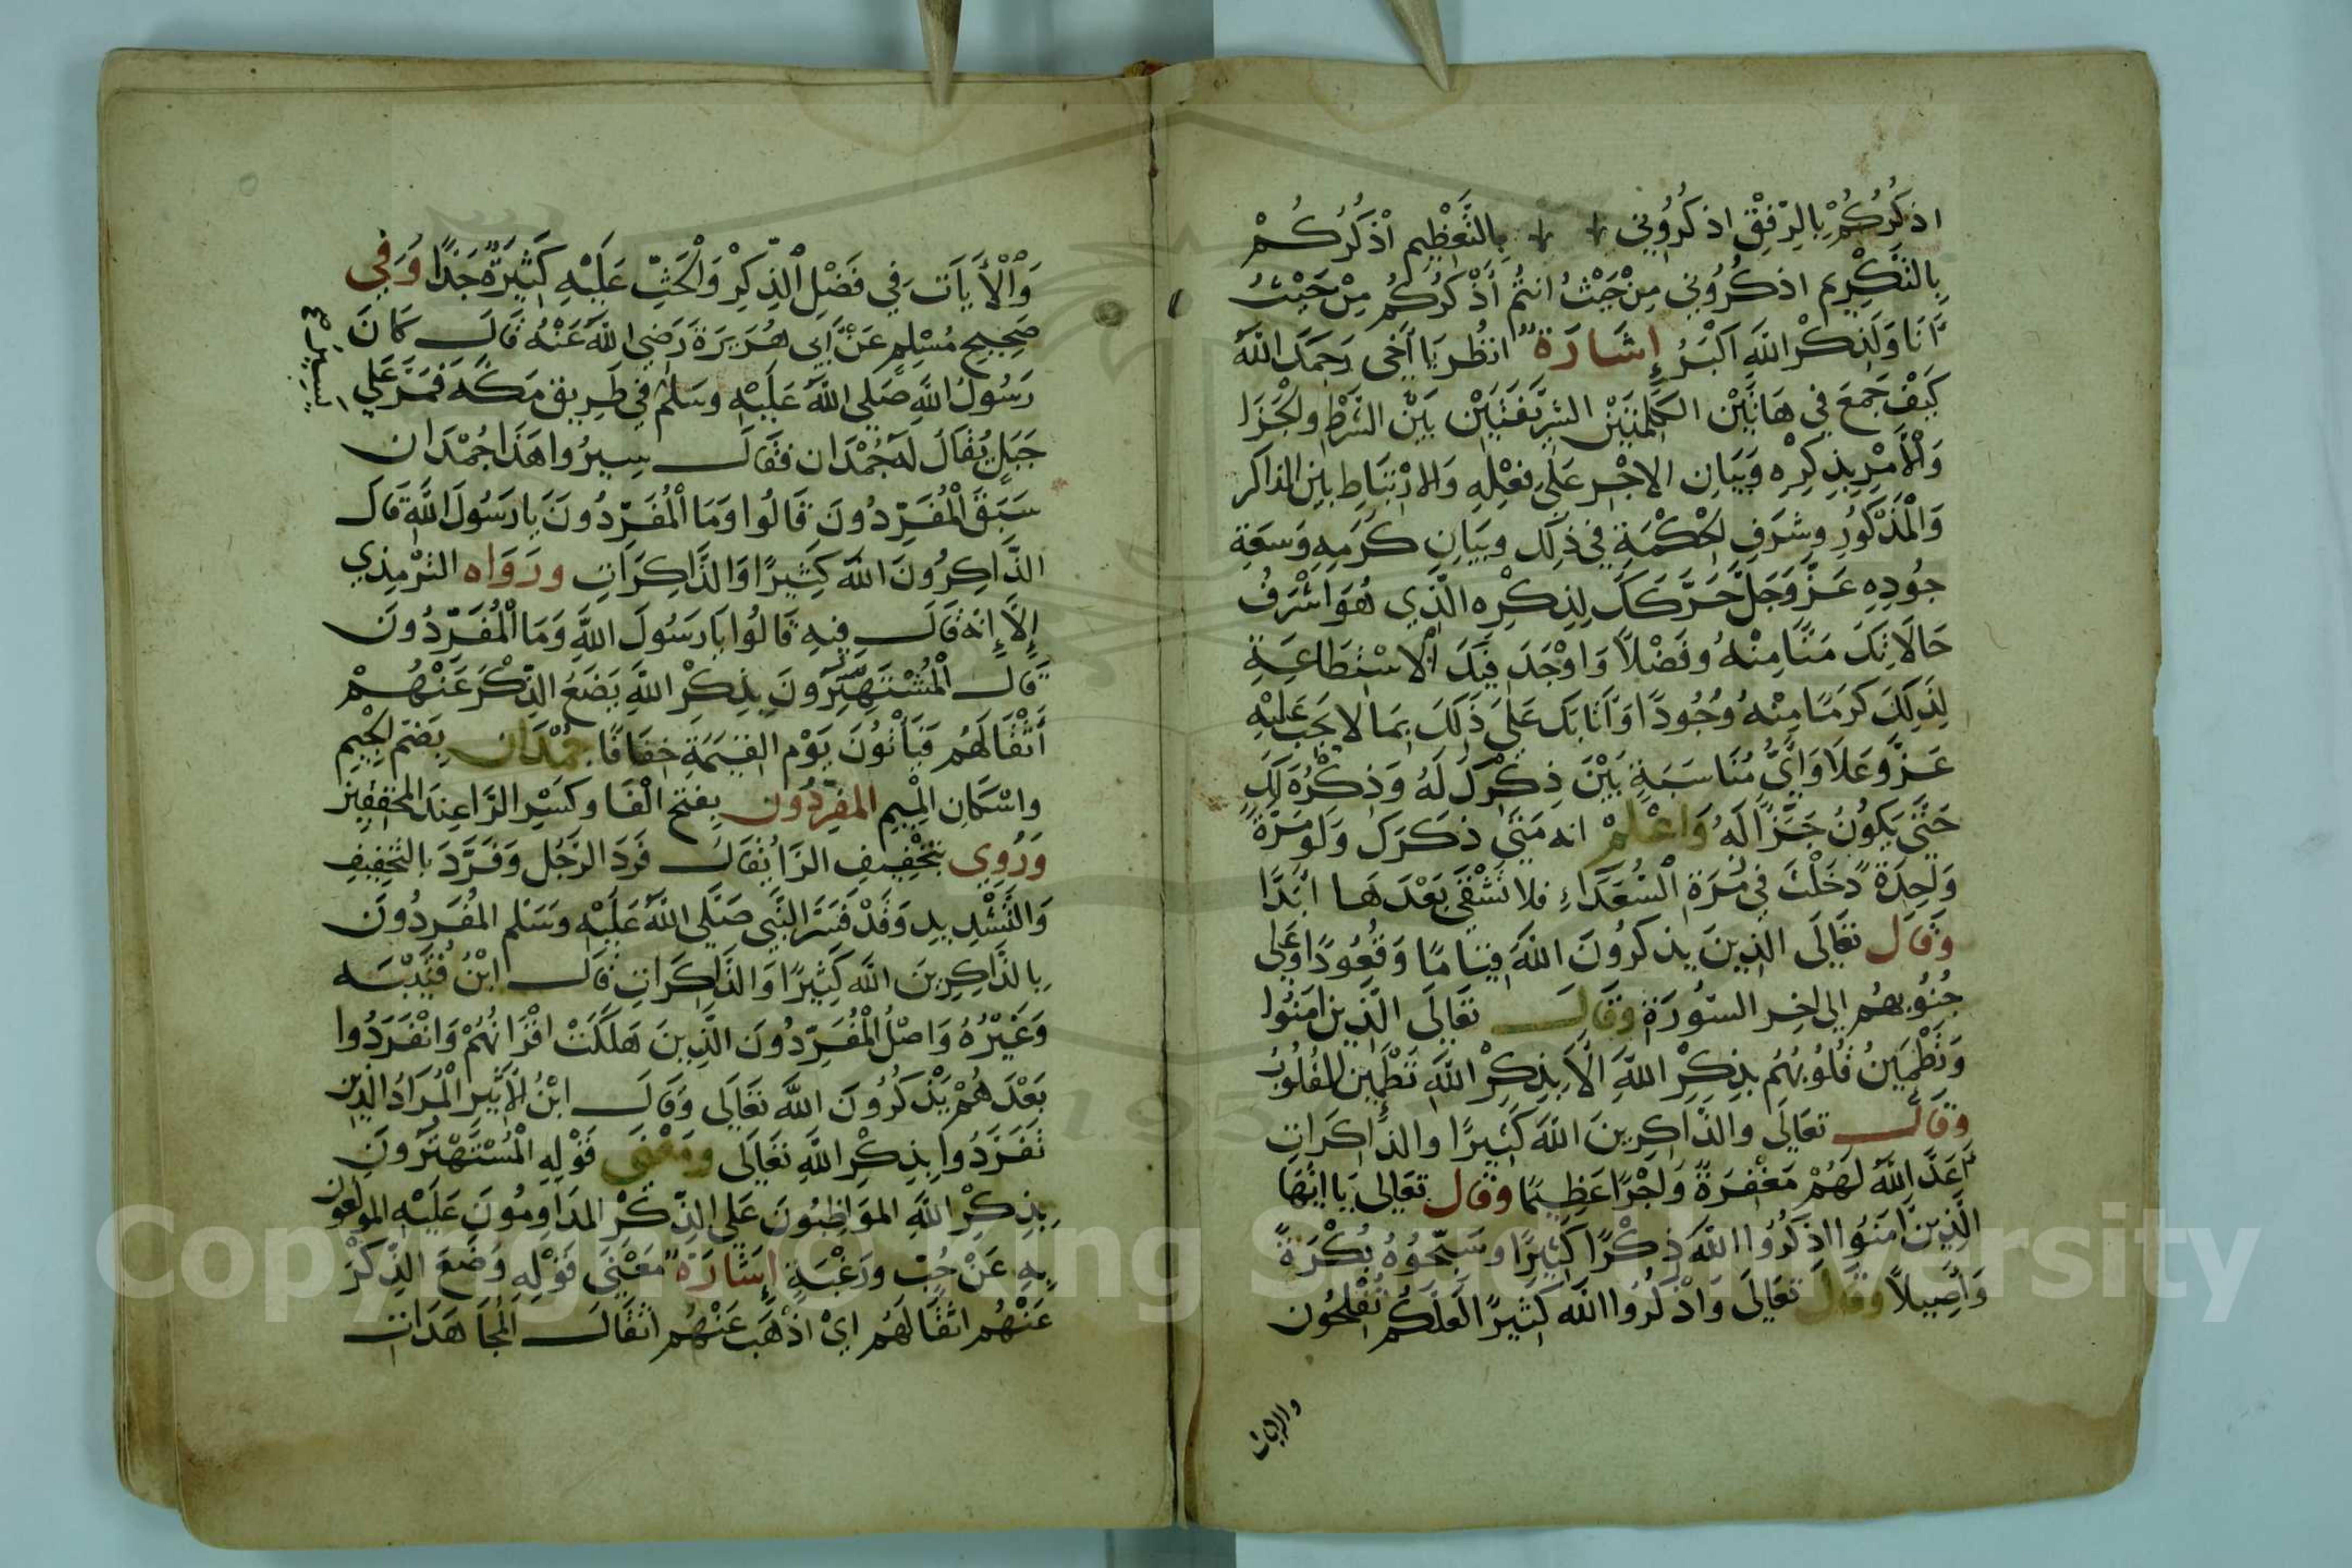 اذكُرْكُمْ بِالرِّفْقِ اذكُرُوُني بِالتَّعْظِيمِ اذْكُرْكُمْ
بِالتَّكْرِيمِ اذكُرُوُني مِنْ حَيْثُ انتُم أذْكُرْكُم مِنْ حَيْثُ
أنَا وَلَذِكْرُ اللَّه اكْبَرُ إِشَارَة انظُر يَا أخِى رَحِمَكَ اللَّهُ
كَيْفَ جَمَعَ فِي هَاتَيْنِ الكَلِمَتَيْن الشَرِيفَتَيْن بَيْنَ الشَرْطِ والجَزَا
وَالأَمْرِ بِذِكِرْه وَبَيَانِ الاجْرِ عَلَى فِعْلِهِ وَالارْتِبَاطِ بين الذاكر
وَالْمَذْكُورِ وشَرَفِ الحِكْمَةِ فِي ذِلَك وبَيَانِ كَرَمِهِ وَسَعَةِ
جُودِهِ عَزَّ وَجَلَّ حَرَّكَكَ لِذِكْرِه الَّذِي هُوَ اشْرَفُ
حَالَاتِكَ مَنًّا مِنْهُ وفَضْلاً وَاوْجَدَ فِيكَ الاسْتِطَاعَةِ
لِذَلِكَ كَرَمًا مِنْهُ وُجُودًا وَأثَابَكَ عَلَى ذَلِكَ بِمَا لا يَجِبُ عَلَيْهِ
عَزَّ وَعَلَا وَأيُّ مُنَاسَبَةٍ بَيْنَ ذِكْرِكَ لَهُ وَذِكْرُه لَكَ
حَتَّى يَكُونُ جَزَّاً لَهُ وَاعْلَمْ انه مَتَى ذكَرَكَ وَلَو مَرّةً
وَاحِدَةً دَخَلْتَ فِي مُرَةِ السُّعَدَاءِ فلا تَشْقَى بَعْدَهَا ابَدًا
وَقَال تَعَالَى الذِينَ يذكرُونَ اللهَ قِيَامًا وَقُعُودًا وَعَلى
جُنُوبِهُم إلى اخِرِ السّورَةِ وَقَالَ تَعَالَى الَّذِينَ امَنُوا
وَتَطْمَيِنُ قُلُوبُهُم بِذِكِرْ اللهِ ألَا بِذِكِرْ اللهِ تَطْمَين القُلُوبُ
وقَالَ تَعَالَى والذّاكِرِينَ اللهَ كَثِيرًا والذاكَرَاتِ
أعَدَّ اللهُ لَهُمْ مَغْفِرَةً وَاجْرًا عَظِيمًا وقَال تعَالى يَا ايُّهَا
الَّذِينَ امَنُوا اذكُرُوا اللَّهَ ذِكْرًا كَثِيرًا وسَبِّحُوُهُ بُكْرَةً
وَأصِيلاً وقَالَ تَعَالَى وَاذْكُرُوا اللَّه كَثِيرًا لَعَلَّكُم تُفْلحُون
والايات
وَالْأَيَاتَ فِي فَضْلِ الذِّكِرْ وَالحَثِّ عَلَيْهِ كَثِيرَةٌ جَدًّا وَفِي
صَحِيحِ مُسْلِمٍ عَنْ أبِي هُرَيرَةَ رَضِي اللهُ عَنْهُ قَالَ كَانَ
رَسُولُ اللهِ صَلى اللهُ عَلَيْهِ وسَلمْ فِي طَرِيق مَكَّهَ فَمَرَّ عَلى
جَبَلٍ يُقَالُ لَهُ جُمْدَان فَقَالَ سِيرُوا هَذَا جُمْدَان
سَبَقَ الْمُفَرِّدُونَ قَالُوا وَمَا الْمُفَرِّدُونَ يَا رَسُولَ اللهِ قَالَ
الذَّاكِرُونَ اللهَ كَثِيرًا وَالذَّاكِرَاتِ ورَوَاه الترْمِذِي
إلَّا إنَهُ قَالَ فِيهِ قَالُوا يَا رَسُولَ اللهِ وَمَا الْمُفَرِّدُونَ
قَالَ الْمُسْتَهتِرُونَ بِذِكْرِ اللهِ يَضَعُ الذِّكْرَ عَنْهُمْ
أَثْقَالَهُم فَيَأْتُونَ يَوْم القِيَمَةِ خِفَافًا جُمْدَان بِضَمِّ الجِيِم
واسْكَانِ المِيِم المفرِّدُون بِفتح الْفَا وكَسْرِ الرَّا عِندَ المحققين
وَرُوِي بتَخْفِيفِ الرَّا يُقَالُ فَرَدَ الرَّجُل وَفَرَّدَ بالتَّخفِيفِ
وَالتَّشْدِيدِ وَقَدْ فَسَرَ النَّبَي صَلَّى اللهُ عَلَيْهِ وسَلم المُفَردُونَ
بِالذَاكِرِينَ اللهَ كَثِيرًا وَالذَّاكِرَاتِ قَالَ ابْنُ قُتَيْبَه
وَغَيْرُهُ وَاصْلُ الْمُفَرِّدُونَ الَّذِينَ هَلَكَتْ اقْرَانُهُمْ وَانْفَرَدُوا
بَعْدَهُمْ يَذْكُرُوُنَ اللهَ تَعَالَى وَقَالَ ابْنُ الأَثيرِ الْمُرَادُ الذِين
تَفَرَّدُوا بِذِكِرْ اللهِ تَعَالَى ومَعْنَى قَوْلِهِ الْمُسْتَهْتَرُونَ
بِذِكِرْ اللَّهِ الموَاظِبُونَ عَلى الذِّكْرِ المدَاوِمُونَ عَلَيْهِ المولعون
بِهِ عَنْ حُبّ ورَغْبَةٍ إشَارَة مَعْنَى قَوْلِهِ وَضَعَ الذِّكْرَ
عَنْهُم اثْقَالَهُم ايْ اذْهَبَ عَنْهُم اثْقَالَ الُمجَاهَدَاتِ